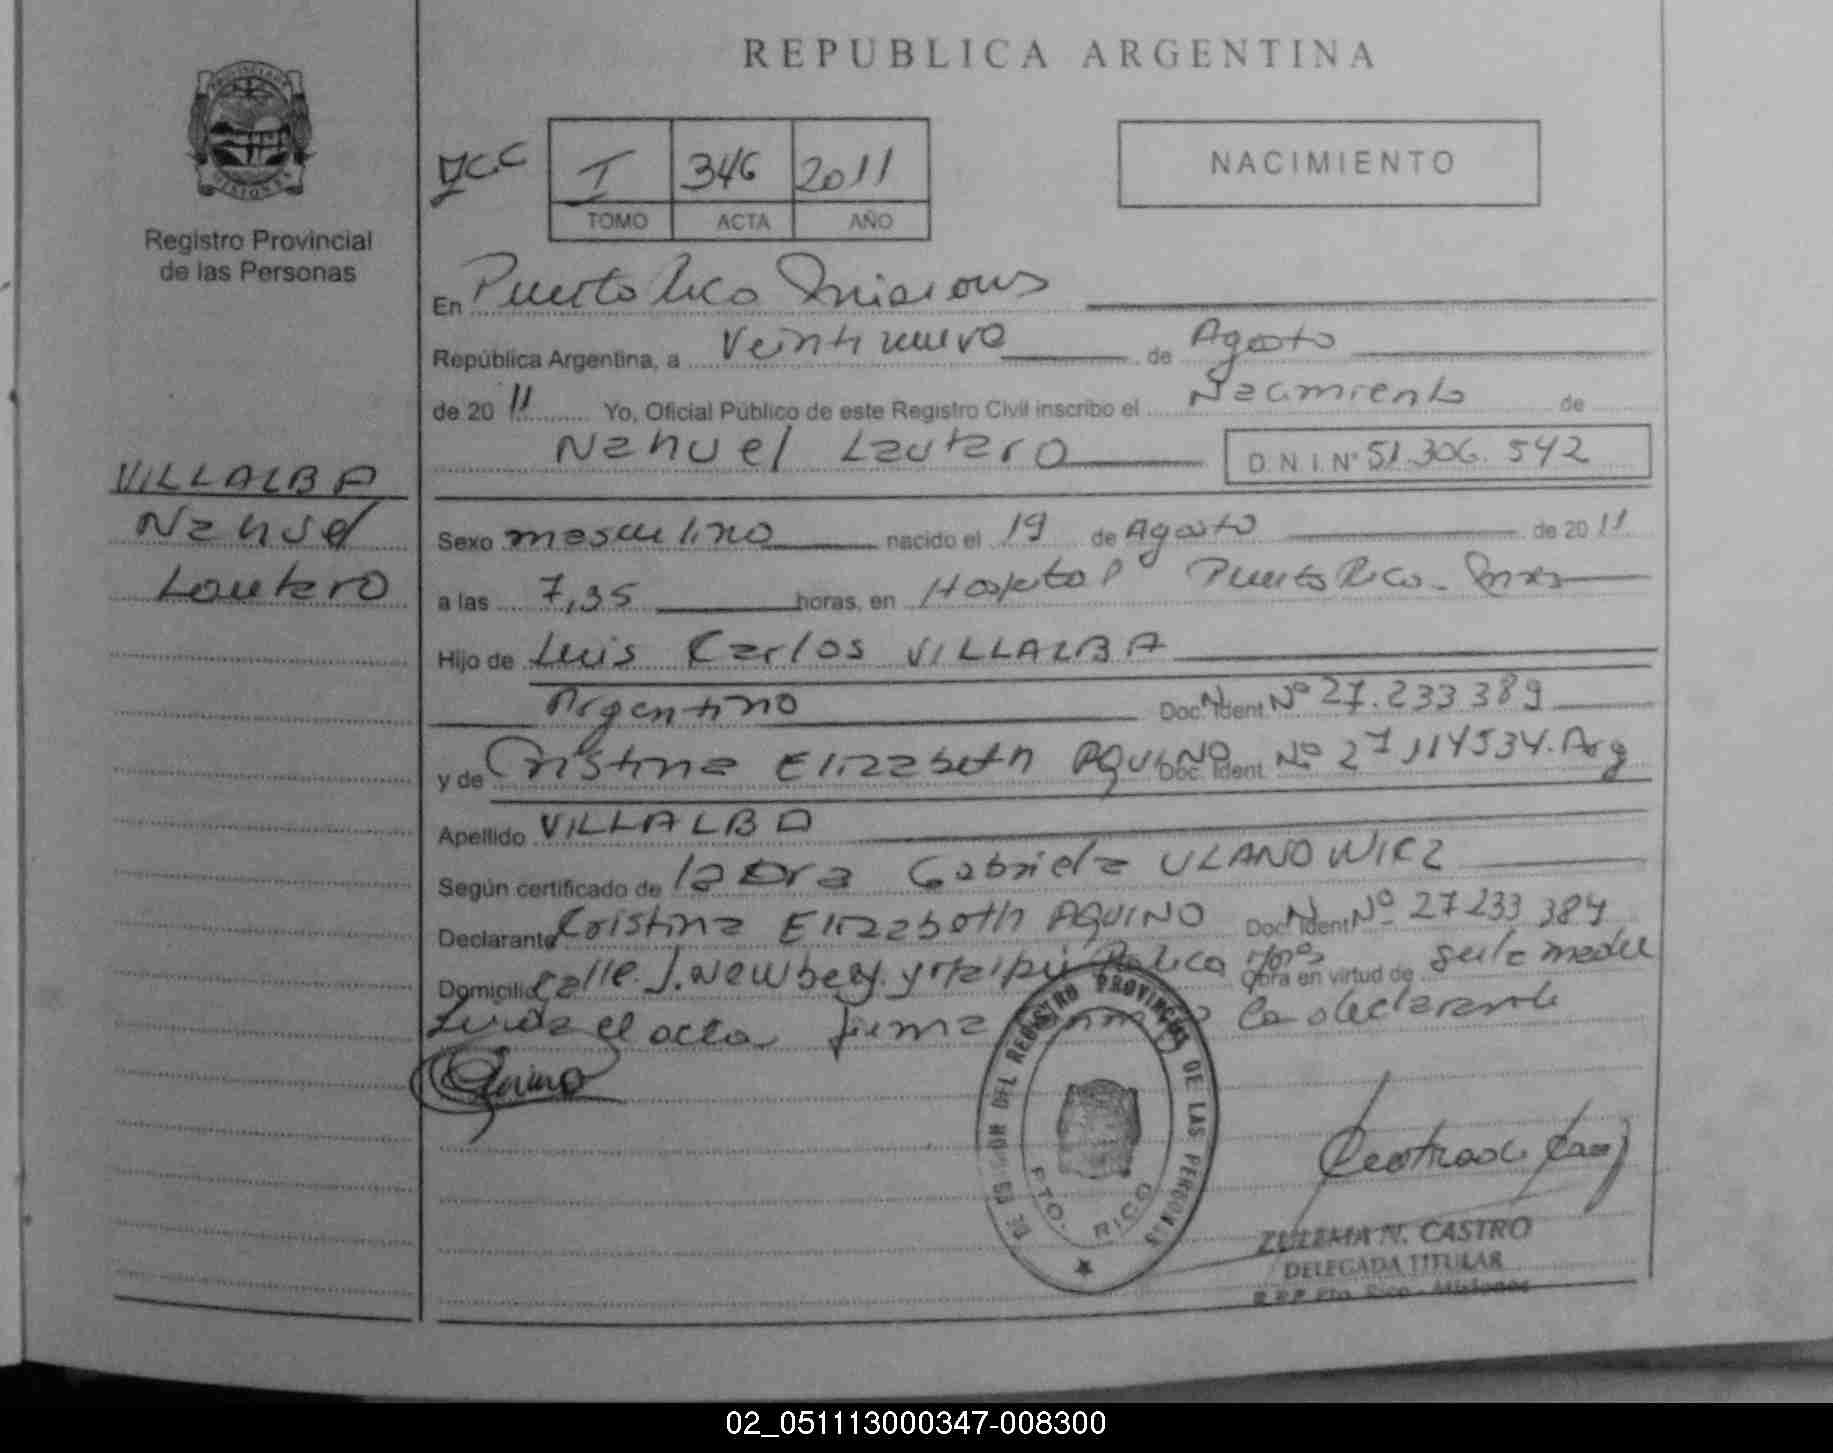 REPUBLICA ARGENTINA
PROVINCIA DE MISIONES
Registro Provincial
de las Personas
I 346 2011
TOMO ACTA AÑO
NACIMIENTO
En Puerto Rico Misiones
República Argentina, a Veintinueve de Agosto
de 20 11 Yo, Oficial Público de este Registro Civil inscribo el Nacimiento de
Nahuel Lautaro D.N.I.Nº 51.306.542
VILLALBA
Nahuel
Lautaro
Sexo masculino nacido el 19 de Agosto de 20 11
a las 7,35 horas, en Hospital Pº Puerto Rico - Mnes
Hijo de Luis Carlos VILLALBA
Argentino Doc. Ident. Nº 27.233 389
y de Cristina Elizabeth AQUINO Doc. Ident. Nº 27 114534. Arg
Apellido VILLALBA
Según certificado de la Dra Gabriela ULANOWICZ
Declarante Cristina Elizabeth AQUINO Doc. Ident. Nº 27 233 384
Domicilio calle J. Newbery y Obra en virtud de ser la madre
Leida el acta firma la declarante
Aquino
DEL REGISTRO PROVINCIAL DE LAS PERSONAS
PTO. RICO
ZULEMA N. CASTRO
DELEGADA TITULAR
R.P.P. Pto. Rico - Misiones
02_051113000347-008300